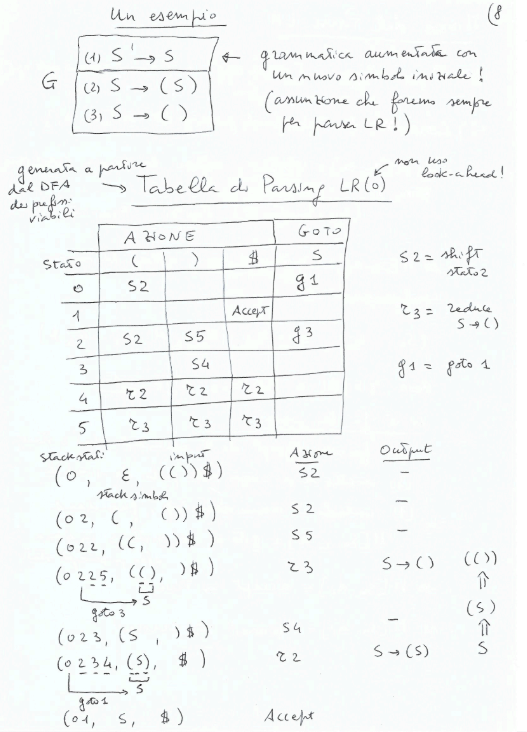 Un esempio
(8
G
(1) S' → S
(2) S → (S)
(3) S → ( )
← grammatica aumentata con
un nuovo simbolo iniziale!
(assunzione che faremo sempre
per parser LR!)
generata a partire
dal DFA
dei prefissi
viabili
→ Tabella di Parsing LR(0)
non uso
look-ahead!
AZIONE GOTO
Stato ( ) $ S
0 S2 g1
1 Accept
2 S2 S5 g3
3 S4
4 r2 r2 r2
5 r3 r3 r3
S2 = shift
stato 2
r3 = reduce
S → ()
g1 = goto 1
stack stati input Azione Output
(0, ε, (())$) S2 –
stack simboli
(02, (, ())$) S2 –
(022, ((, ))$) S5 –
(0225, ((), )$) r3 S → () (())
⇑
goto 3 S
(S)
(023, (S, )$) S4 – ⇑
(0234, (S), $) r2 S → (S) S
goto 1 S
(01, S, $) Accept